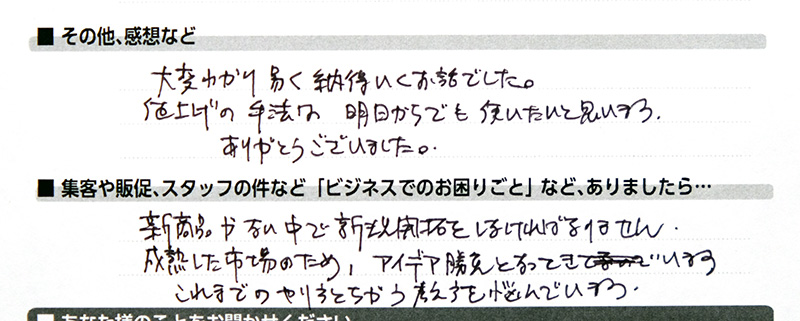 ■ その他、感想など
大変わかり易く納得いくお話でした。
値上げの手法は 明日からでも使いたいと思います。
ありがとうございました。
■ 集客や販促、スタッフの件など「ビジネスでのお困りごと」など、ありましたら…
新商品がない中で新規開拓をしなければなりません.
成熟した市場のため、アイデア勝負となってきています
これまでのやり方とちがう考え方を悩んでいます.
■ あなた様のことをお聞かせください